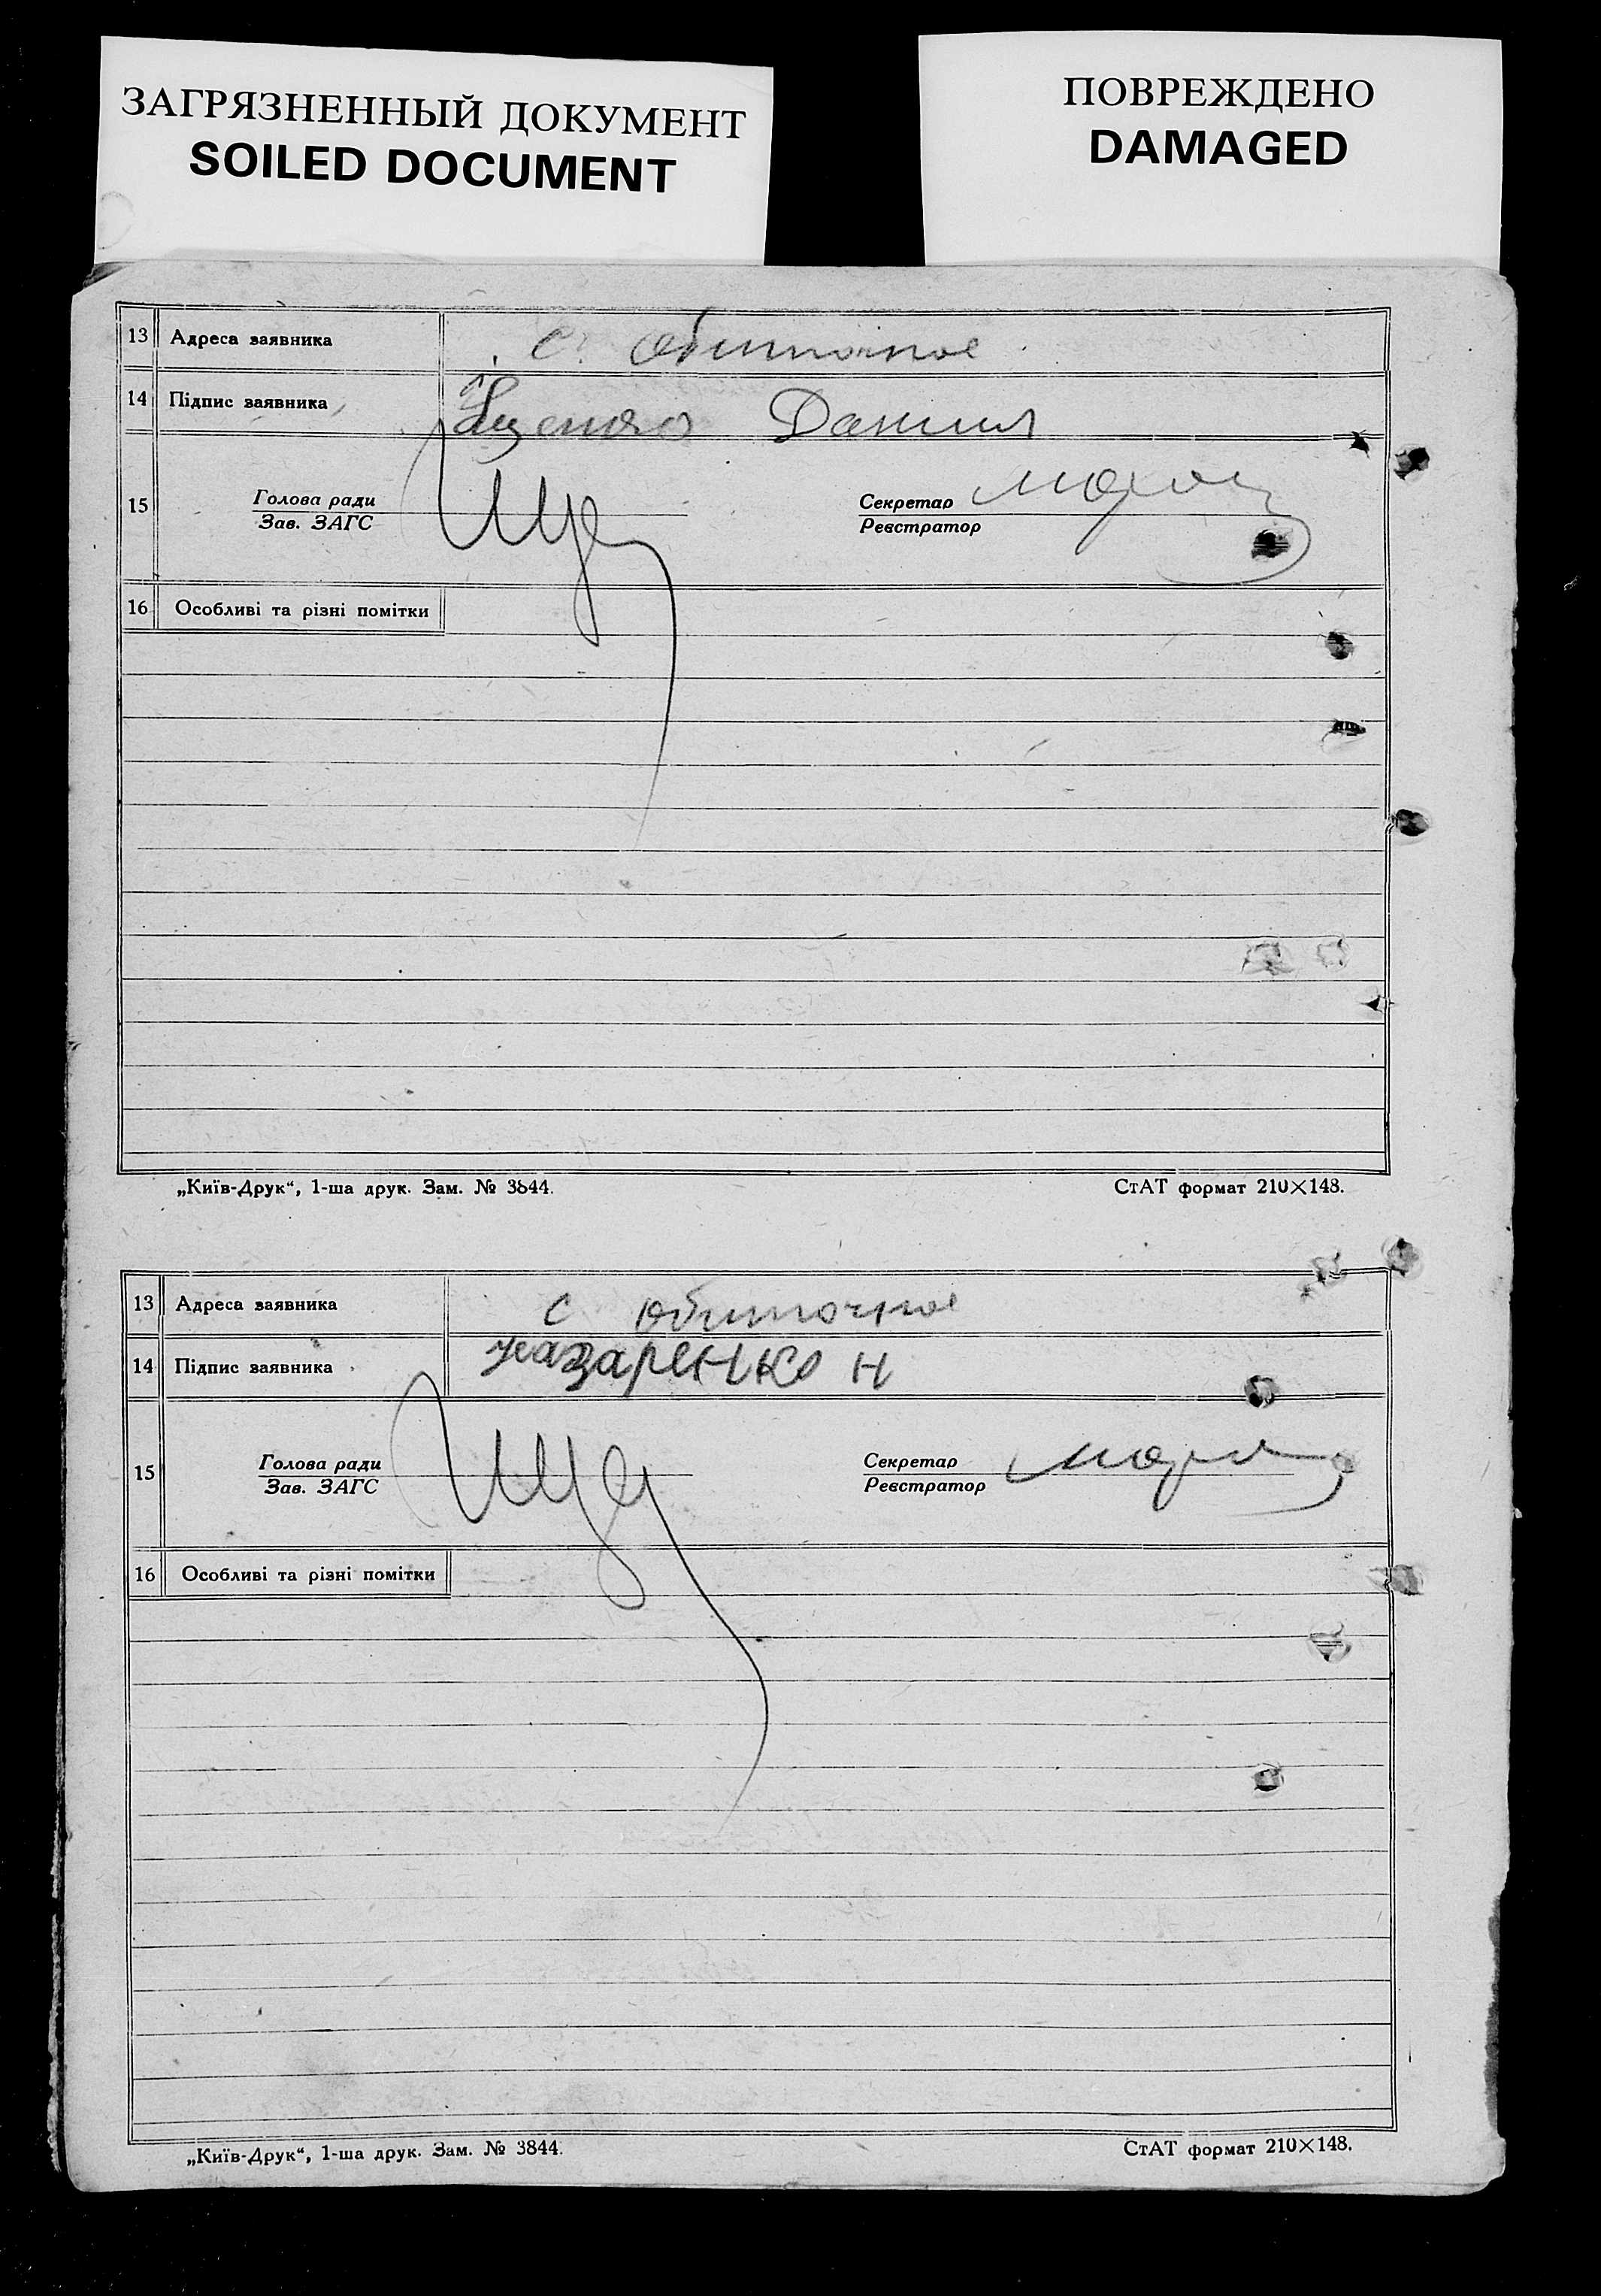 ЗАГРЯЗНЕННЫЙ ДОКУМЕНТ
SOILED DOCUMENT
ПОВРЕЖДЕНО
DAMAGED
13 Адреса заявника с. Обиточное
14 Підпис заявника Данил
15 Голова ради Секретар
Зав. ЗАГС Реєстратор
16 Особливі та різні помітки
„Київ-Друк“, 1-ша друк. Зам. № 3844. СтАТ формат 210×148.
13 Адреса заявника с Обиточное
14 Підпис заявника Назаренко Н
15 Голова ради Секретар
Зав. ЗАГС Реєстратор
16 Особливі та різні помітки
„Київ-Друк“, 1-ша друк. Зам. № 3844. СтАТ формат 210×148.